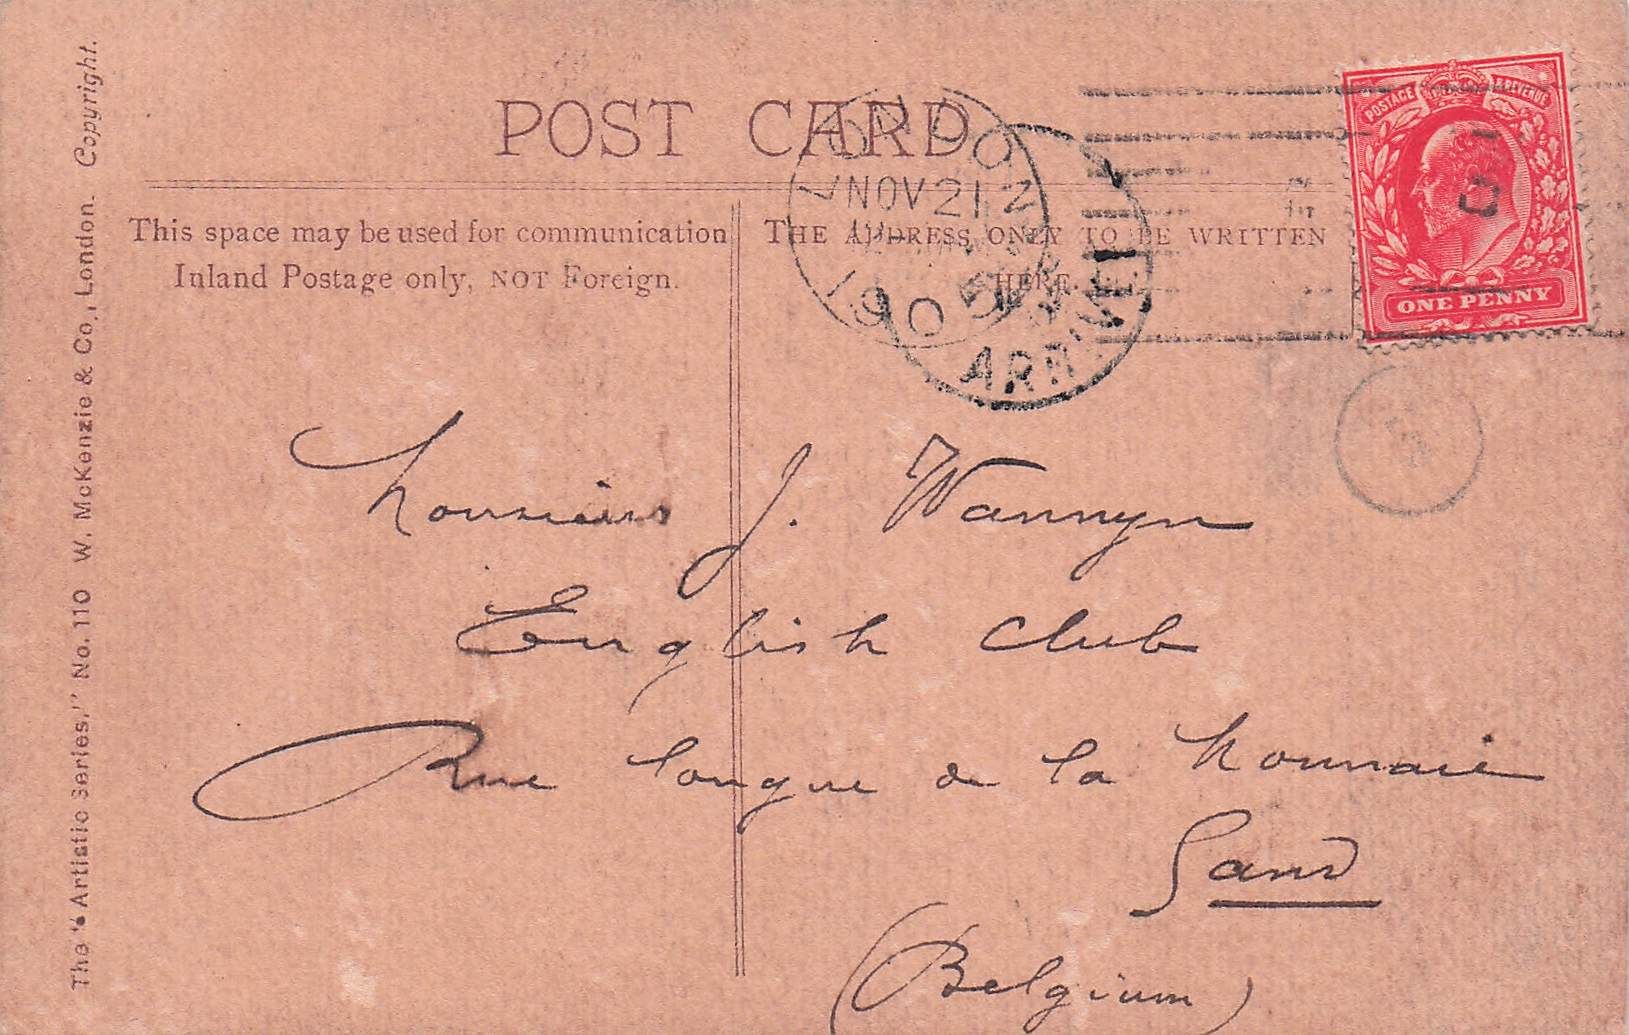 The "Artistic Series," No. 110 W. McKenzie & Co., London. Copyright.
POST CARD
This space may be used for communication
Inland Postage only, NOT Foreign.
THE ADDRESS ONLY TO BE WRITTEN
HERE.
LONDON
NOV 21
190
ARRIVÉE
POSTAGE & REVENUE
ONE PENNY
Monsieur J. Wannyn
English Club
Rue longue de la Monnaie
Gand
(Belgium)